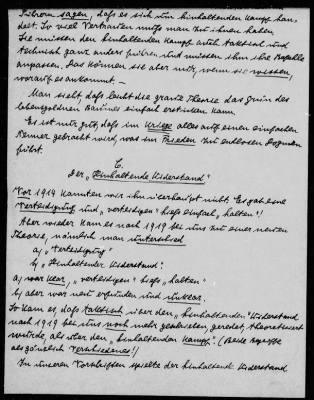 Führern sagen, daß es sich um hinhaltenden Kampf han-
delt. So viel Vertrauen muß man zu ihnen haben.
Sie müssen den hinhaltenden Kampf auch taktisch und
technisch ganz anders führen und müssen ihm ihre Befehle
anpassen. Das können sie aber nur, wenn sie wissen,
worauf es ankommt. –
Man sieht, daß leicht die graue Theorie das Grün des
lebensgoldnen Baumes einfach ersticken kann.
Es ist nur gut, daß im Kriege alles auf einen einfachen
Nenner gebracht wird, was im Frieden zu endlosen Dogmen
führt.
C.
Der "Hinhaltende Widerstand"
Vor 1914 kannten wir ihn überhaupt nicht. Es gab eine
Verteidigung und "verteidigen" hieß einfach "halten"!
Aber wieder kam es nach 1919 bei uns zu einer neuen
Theorie, nämlich man unterschied
a) "Verteidigung"
b) "Hinhaltender Widerstand".
a) war klar, "verteidigen" hieß "halten"
b) aber war neu erfunden und unklar.
So kam es, daß taktisch über den "hinhaltenden Widerstand
nach 1919 bei uns noch mehr geschrieben, geredet, theoretisiert
wurde, als über den "hinhaltenden Kampf". (Beide Begriffe
als gänzlich Verschiedenes!)
In unseren Vorschriften spielte der hinhaltende Widerstand